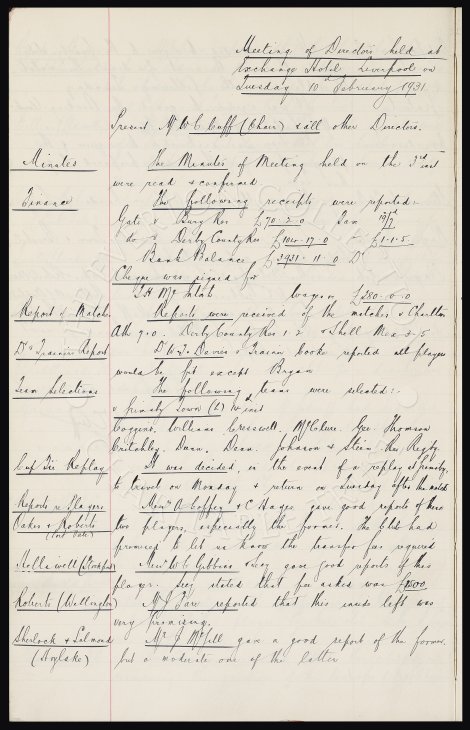 Meeting of Directors held at
Exchange Hotel Liverpool on
Tuesday 10th February 1931
Present Mr W C Cuff (Chair) & all other Directors.
Minutes The Minutes of Meeting held on the 3rd inst
were read & confirmed
Finance The following receipts were reported:-
Gate v Bury Res £70-2-0
do v Derby County Res £104-17-0 £1-1-5
Bank Balance £3931-11-0 Dr
Cheque was signed for
T H McIntosh Wages £280-0-0
Report of Matches Reports were received of the matches v Charlton
Ath 7-0. Derby County Res 1-2 & Shell Mex 3-5
Drs & Trainers Report Dr W. J. Davies & Trainer Cooke reported all players
would be fit except Bryan
Team Selections The following teams were selected:-
v Grimsby Town (L) inst
Coggins, Williams Cresswell. McClure. Gee. Thomson
Critchley. Dunn. Dean. Johnson & Stein. Res. Rigby.
Cup Tie Replay It was decided, in the event of a replay at Grimsby,
to travel on Monday & return on Tuesday after the match
Reports re Players Messrs A Coffey & C Hayes gave good reports of these
Oakes & Roberts two players, especially the former. The Club had
(Port Vale) promised to let us know the transfer fee required
Hollawell (Stockport) Messrs W C Gibbins & Secy gave good reports of this
player. Secy stated that fee asked was
Roberts (Wellington) Mr J Fare reported that this inside left was
very promising.
Sherlock & Salmond Mr J McGill gave a good report of the former
(Hoylake) but a moderate one of the latter